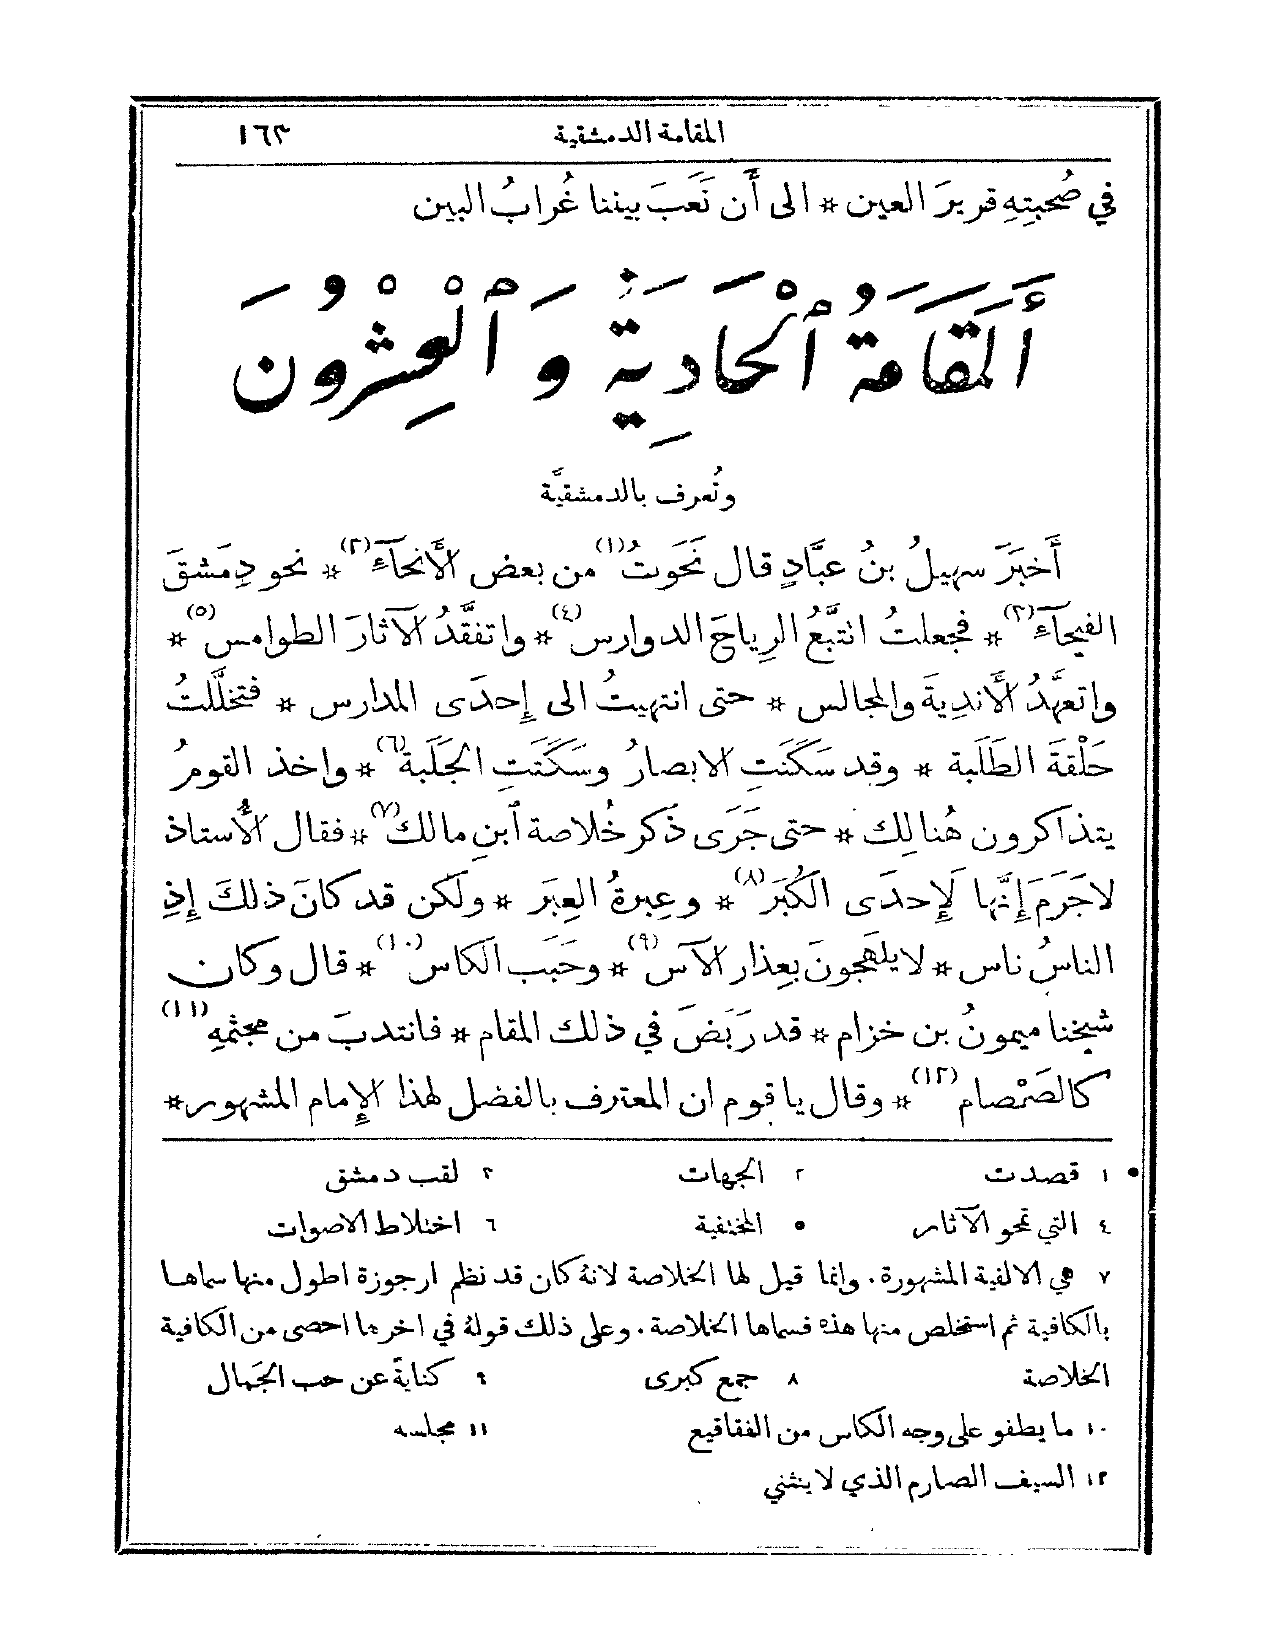 المقامة الدمشقية ١٦٣
في صُحبتِهِ قريرَ العين * الى أَن نَعَبَ بيننا غُرابُ البين
أَلمَقَامَةُ ٱلْحَادِيَةُ وَٱلْعِشْرُونَ
وتُعرف بالدمشقيَّة
أَخبَرَ سهيلُ بنُ عبَّادٍ قال نَحَوتُ(١) من بعض الأَنحآءِ(٢) * نحو دِمَشقَ
الفيحآءِ(٣) * فجعلتُ اتتبَّعُ الرِياحَ الدوارس(٤) * واتفقَّدُ الآثارَ الطوامس(٥) *
واتعهَّدُ الأَندِيةَ والمجالس * حتى انتهيتُ الى إِحدَى المدارس * فتخلَّلتُ
حَلْقةَ الطَلَبة * وقد سَكَنَتِ الابصارُ وسَكَتَتِ الجَلَبة(٦) * واخذ القومُ
يتذاكرون هُنالِك * حتى جَرَى ذَكر خُلاصة ٱبنِ مالك(٧) * فقال الأُستاذ
لاجَرَمَ إِنَّها لَإِحدَى الكُبَر(٨) * وعِبرةُ العِبَر * ولكن قد كَانَ ذلك إِذِ
الناسُ ناس * لا يلهَجونَ بعِذار الآس(٩) * وحَبَب الكاس(١٠) * قال وكان
شيخنا ميمونُ بن خزام * قد رَبَضَ في ذلك المقام * فانتدبَ من مجثمِهِ(١١)
كالصَمْصام(١٢) * وقال يا قوم ان المعترف بالفضل لهذا الإِمام المشهور *
١ قصدت ٢ الجهات ٣ لقب دمشق
٤ التي تمحو الآثار ٥ المختفية ٦ اختلاط الاصوات
٧ هي الالفية المشهورة. وانما قيل لها الخلاصة لانهُ كان قد نظم ارجوزة اطول منها سماها
بالكافية ثم استخلص منها هذه فسماها الخلاصة. وعلى ذلك قولهُ في اخرها احصى من الكافية
الخلاصة ٨ جمع كبرى ٩ كنايةً عن حب الجَمال
١٠ ما يطفو على وجه الكاس من الفقاقيع ١١ مجلسه
١٢ السيف الصارم الذي لا ينثني